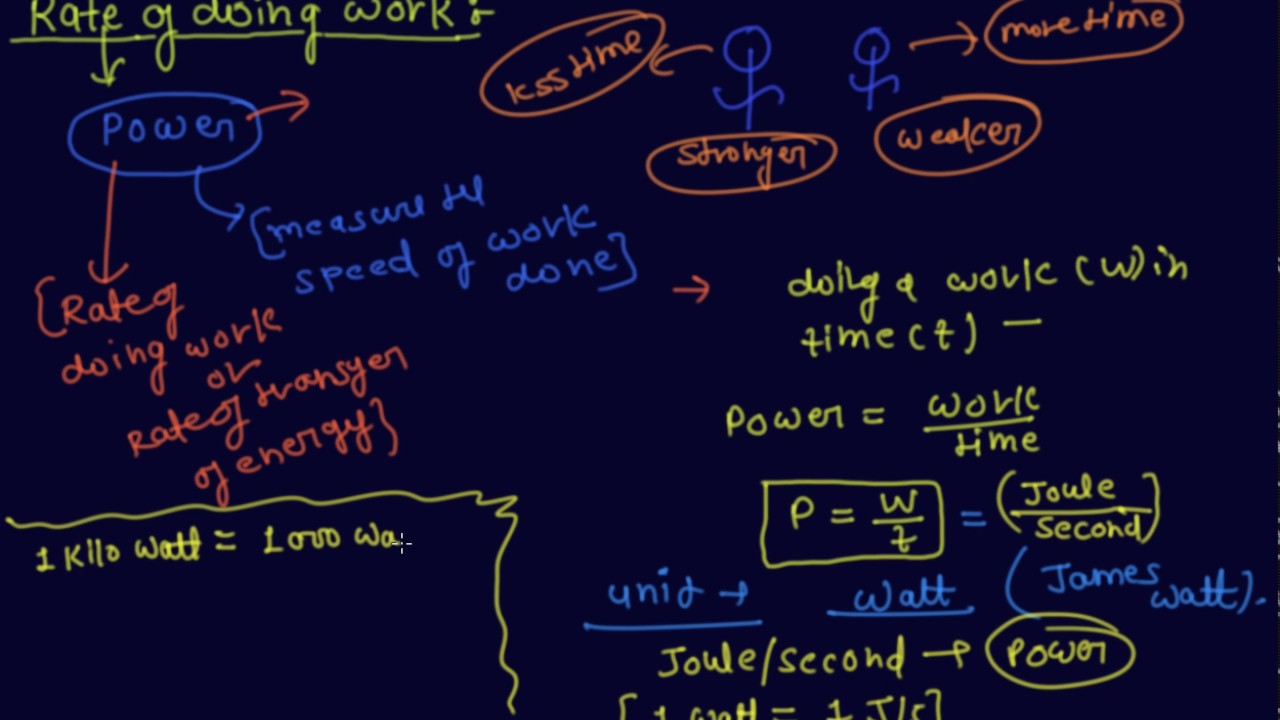 Rate of doing work :-
Power
less time
more time
stronger
weaker
[measure the
speed of work
done]
[Rate of
doing work
or
Rate of transfer
of energy]
→ doing a work (W) in
time (t) —
Power = work
time
P = W
t
= (Joule
second)
unit → watt (James
watt).
Joule/second → Power
[1 watt = 1 J/s]
1 Kilo watt = 1000 wa